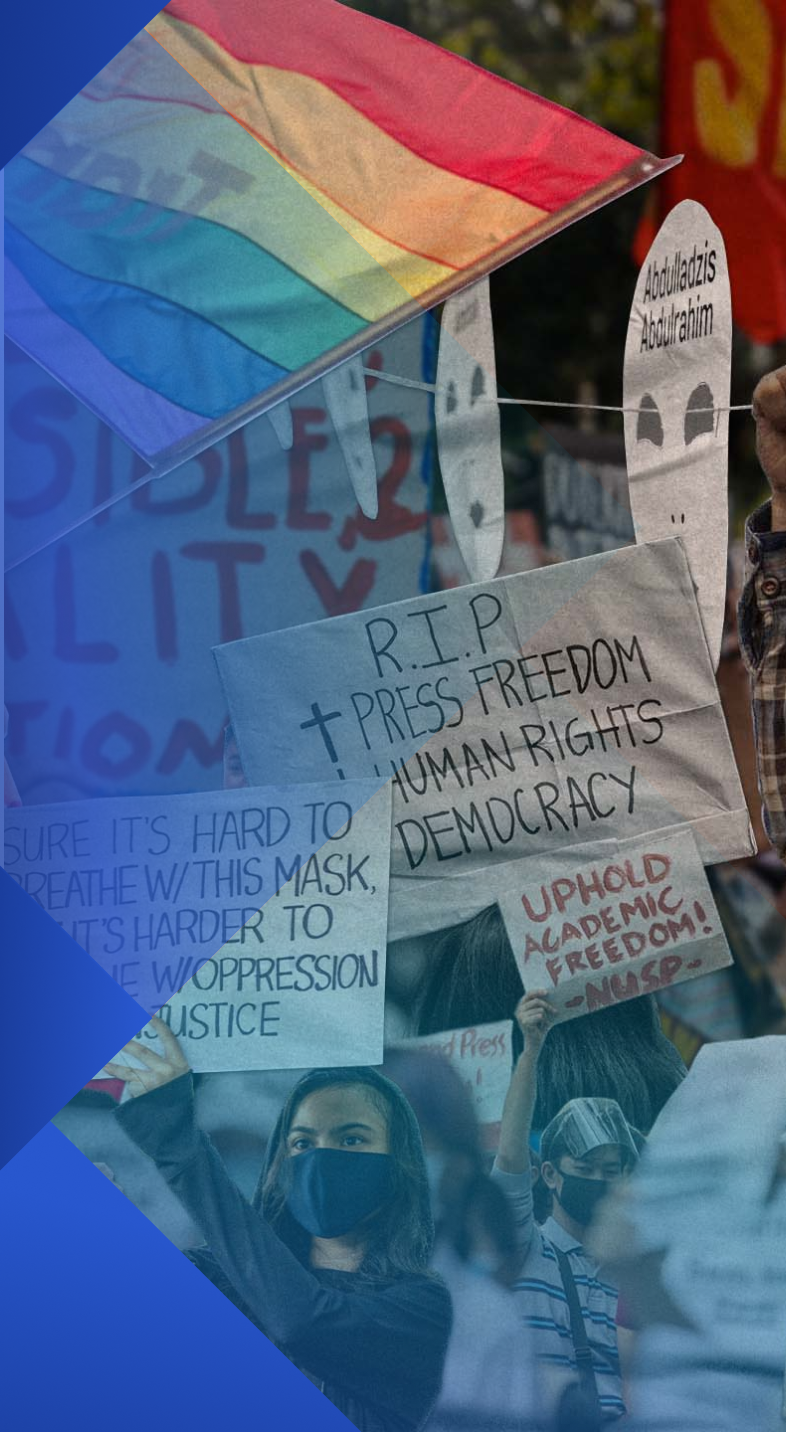 Abdulladzis
Abdulrahim
SIBLE,2
ALITY
TION
R.I.P
PRESS FREEDOM
HUMAN RIGHTS
DEMOCRACY
SURE IT'S HARD TO
BREATHE W/ THIS MASK,
IT'S HARDER TO
W/OPPRESSION
UPHOLD
ACADEMIC
FREEDOM!
-NUSP-
and Press